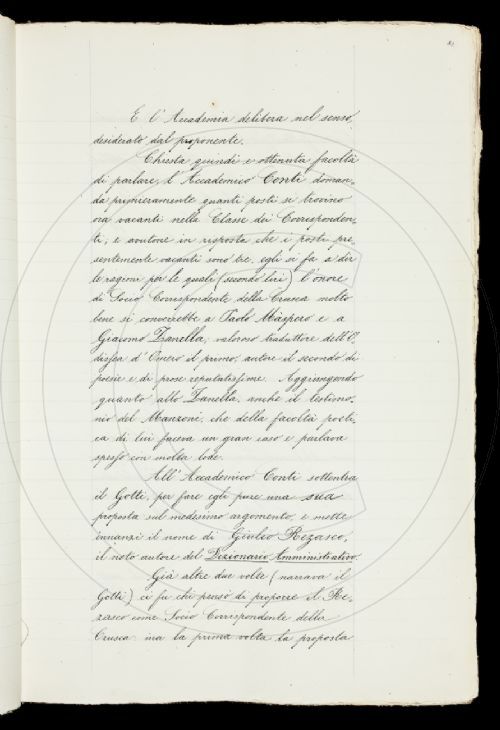 E l'Accademia delibera nel senso,
desiderato dal proponente.
Chiesta quindi e ottenuta facoltà
di parlare, l'Accademico Conti doman-
da primieramente quanti posti si trovino
ora vacanti nella Classe dei Corrisponden-
ti; e avutone in risposta che i posti pre-
sentemente vacanti sono tre, egli si fa a dir
le ragioni per le quali (secondo lui) l'onore
di Socio Corrispondente della Crusca molto
bene si converrebbe a Paolo Màspero e a
Giacomo Zanella; valoroso traduttore dell'O-
dissea d'Omero il primo; autore il secondo di
poesie e di prose reputatissime. Aggiungendo
quanto allo Zanella, anche il testimo-
nio del Manzoni, che della facoltà poeti-
ca di lui faceva un gran caso e parlava
spesso con molta lode.
All'Accademico Conti sottentra
il Gotti, per fare egli pure una sua
proposta sul medesimo argomento, e mette
innanzi il nome di Giulio Rezasco,
il noto autore del Dizionario Amministrativo.
Già altre due volte (narrava il
Gotti) ci fu chi pensò di proporre il Re-
zasco come Socio Corrispondente della
Crusca: ma la prima volta la proposta